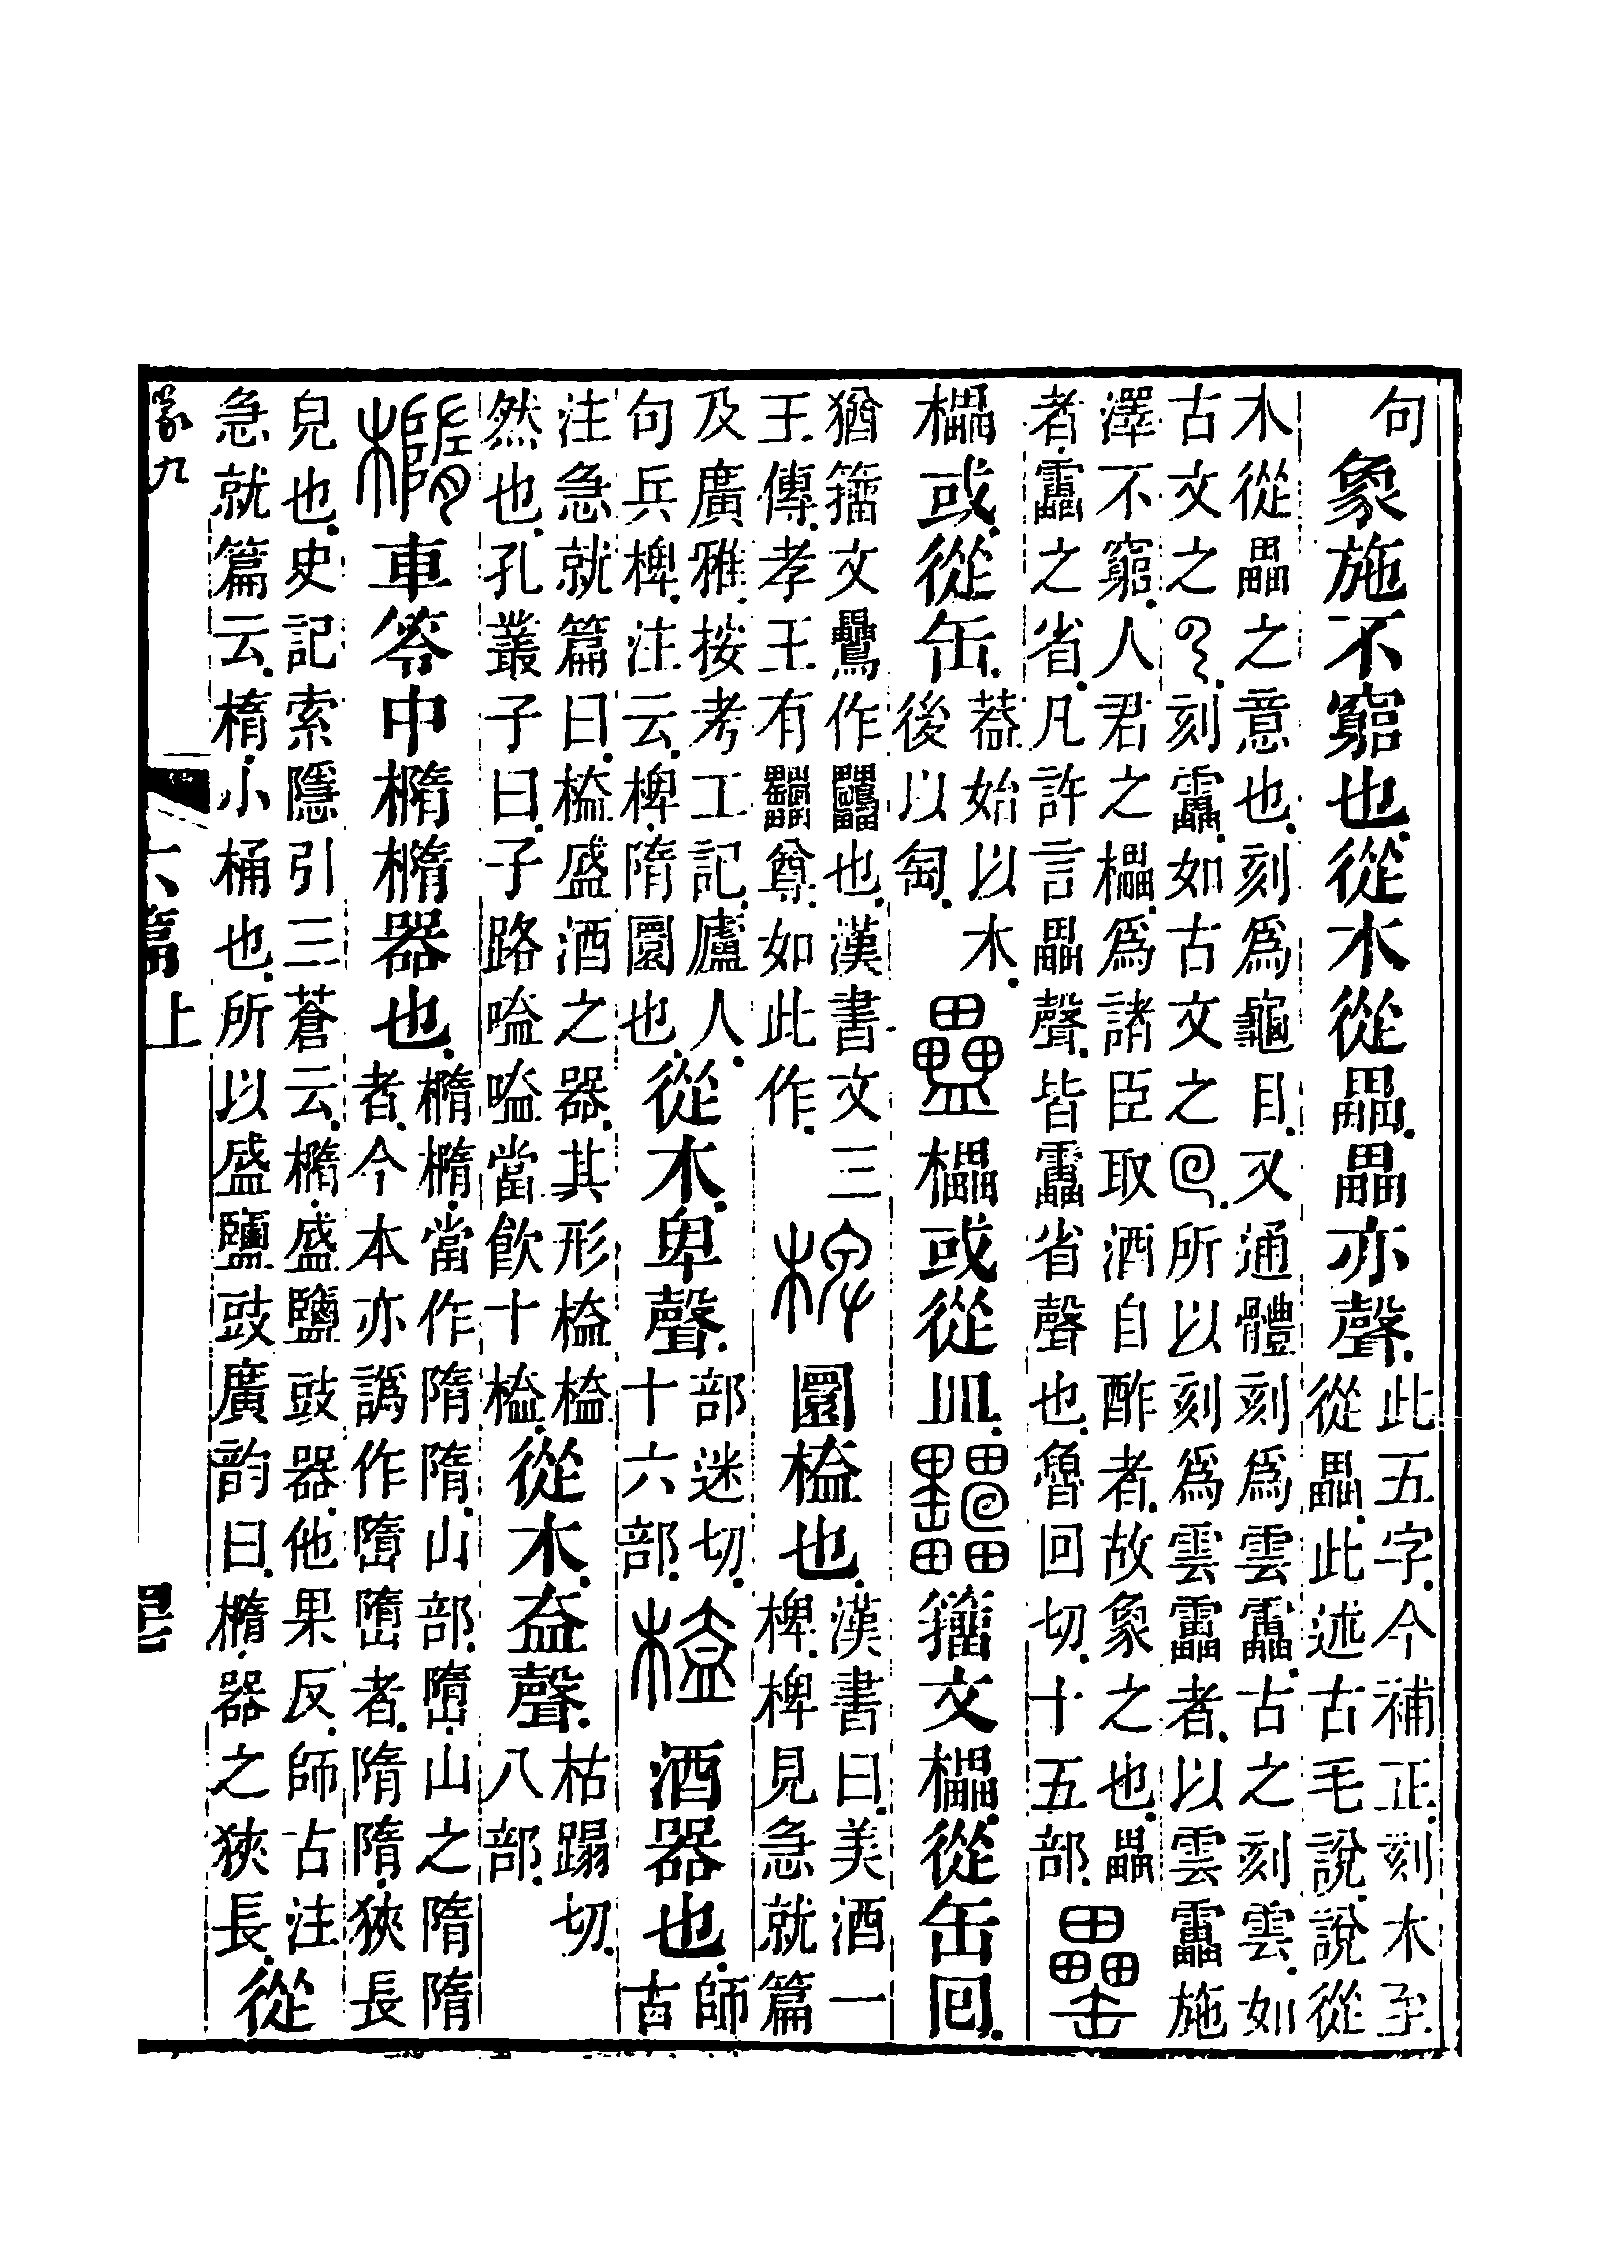 句
象施不窮也。從木從畾。畾亦聲。
此五字。今補正。刻木至
從畾。此述古毛說。說從
木從畾之意也。刻爲龜目。又通體刻爲雲靁。古之刻雲。如
古文之𠄏。刻靁。如古文之回。所以刻爲雲靁者。以雲靁施
澤不窮。人君之櫑。爲諸臣取酒自酢者。故象之也。畾
者靁之省。凡許言畾聲。皆靁省聲也。魯回切。十五部。
罍
櫑或。從缶。
葢始以木。
後以匋。
𥃇
櫑或從皿。
籒文櫑。從缶回。
猶籒文鸓作也。漢書文三
王傳。孝王有尊。如此作。
椑
圜榼也。
漢書曰。美酒一
椑。椑見急就篇
及廣雅。按考工記。廬人
句兵椑。注云。椑。隋圜也。
從木。卑聲。
部迷切。
十六部。
榼
酒器也。
師
古
注急就篇曰。榼盛酒之器。其形榼榼
然也。孔叢子曰。子路嗑嗑。當飮十榼。
從木。盍聲。
枯蹋切
八部。
橢
車笭中橢橢器也。
橢橢。當作隋隋。山部。嶞。山之隋隋
者。今本亦譌作嶞嶞者。隋隋。狹長
皃也。史記索隱引三蒼云。橢。盛鹽豉器。他果反。師古注
急就篇云。楕。小桶也。所以盛鹽豉。廣韵曰。橢。器之狹長。
從
六篇上